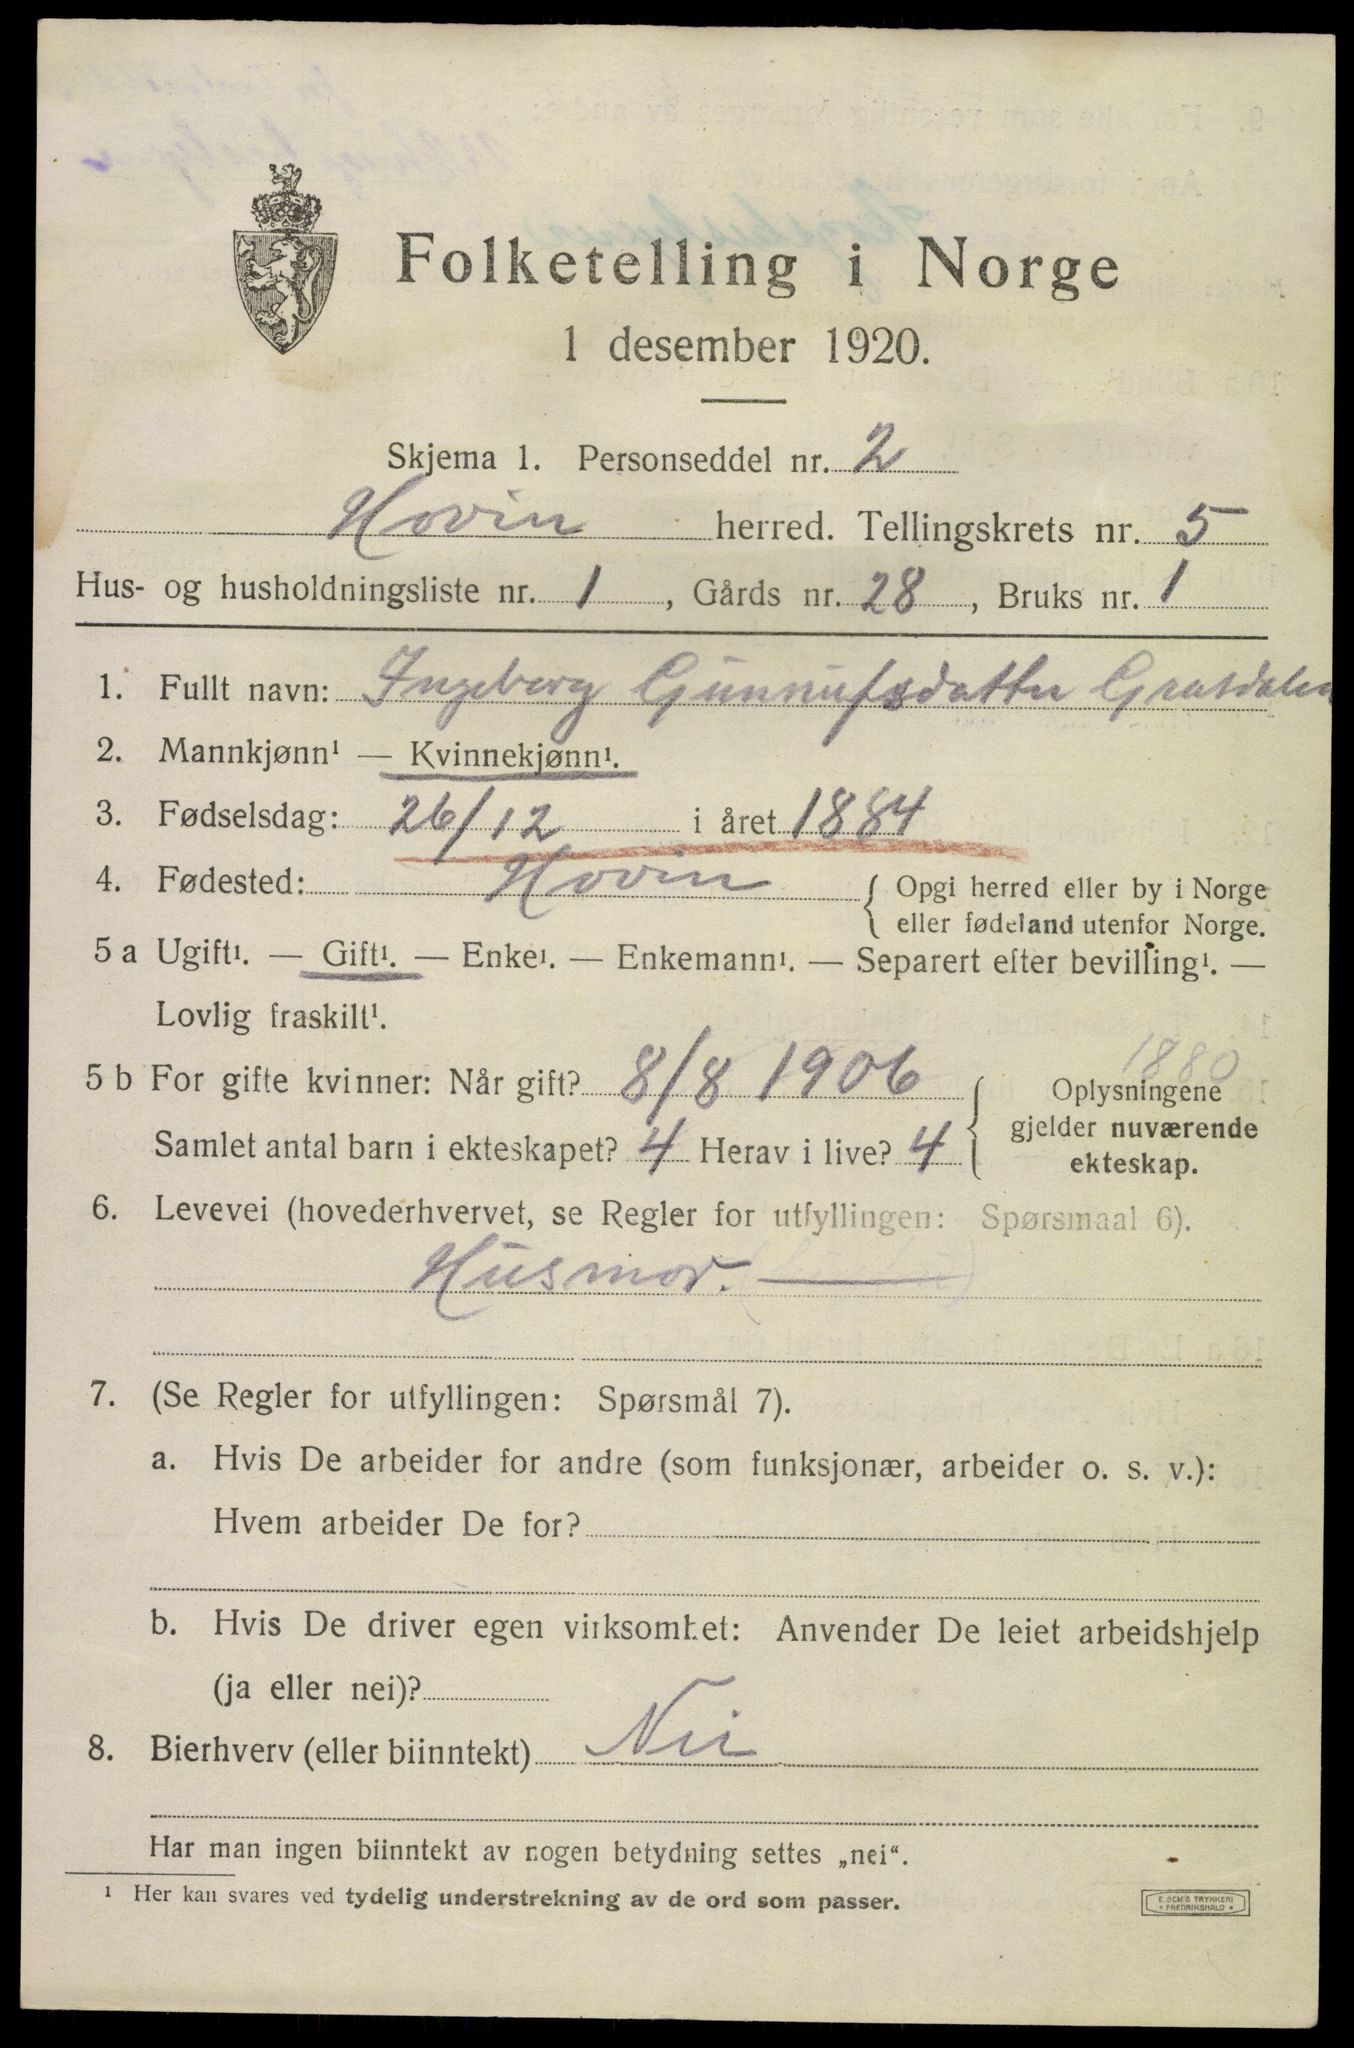 Folketelling i Norge
1 desember 1920.
Skjema 1. Personseddel nr. 2
Hovin herred. Tellingskrets nr. 5
Hus- og husholdningsliste nr. 1, Gårds nr. 28, Bruks nr. 1
1. Fullt navn: Ingeborg Gunnufsdatter Graasdalen
2. Mannkjønn¹ — Kvinnekjønn¹.
3. Fødselsdag: 26/12 i året 1884
4. Fødested: Hovin { Opgi herred eller by i Norge
eller fødeland utenfor Norge.
5 a Ugift¹. — Gift¹. — Enke¹. — Enkemann¹. — Separert efter bevilling¹. —
Lovlig fraskilt¹.
1880
5 b For gifte kvinner: Når gift? 8/8 1906 { Oplysningene
gjelder nuværende
Samlet antal barn i ekteskapet? 4 Herav i live? 4
ekteskap.
6. Levevei (hovederhvervet, se Regler for utfyllingen: Spørsmaal 6).
Husmor.
7. (Se Regler for utfyllingen: Spørsmål 7).
a. Hvis De arbeider for andre (som funksjonær, arbeider o. s. v.):
Hvem arbeider De for?
b. Hvis De driver egen virksomhet: Anvender De leiet arbeidshjelp
(ja eller nei)?
8. Bierhverv (eller biinntekt) Nei
Har man ingen biinntekt av nogen betydning settes „nei“.
¹ Her kan svares ved tydelig understrekning av de ord som passer.
E. SEM'S TRYKKERI
• FREDRIKSHALD •